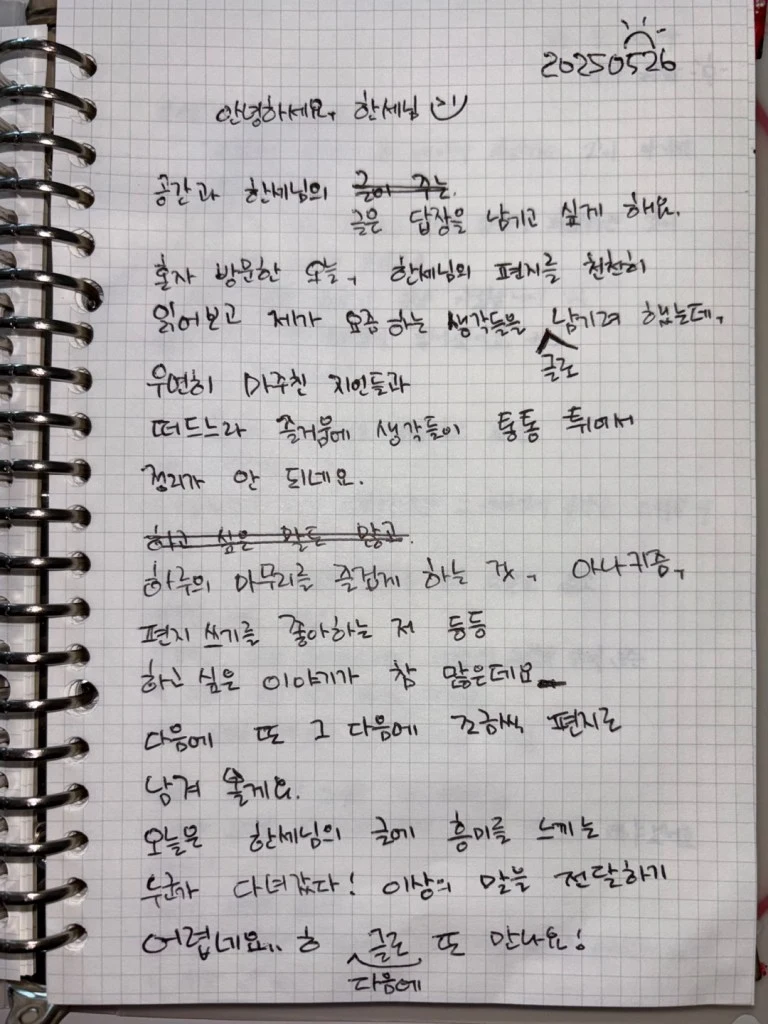 20250526
안녕하세요, 한세님
공간과 한세님의 글이 주는.
글은 답장을 남기고 싶게 해요.
혼자 방문한 오늘, 한세님의 편지를 천천히
읽어보고 제가 요즘 하는 생각들을 남기려 했는데,
글로
우연히 마주친 지인들과
떠드느라 즐거움에 생각들이 통통 튀어서
정리가 안 되네요.
하고 싶은 말도 많고.
하루의 마무리를 즐겁게 하는 것, 아나키즘,
편지 쓰기를 좋아하는 저 등등
하고 싶은 이야기가 참 많은데요
다음에 또 그 다음에 조금씩 편지로
남겨 볼게요.
오늘은 한세님의 글에 흥미를 느끼는
누군가 다녀갔다! 이상의 말을 전달하기
어렵네요.. ㅎ 글로 또 만나요!
다음에